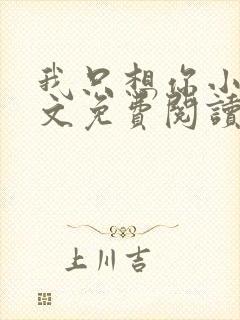 我只想你小
文免費閱讀
上川吉